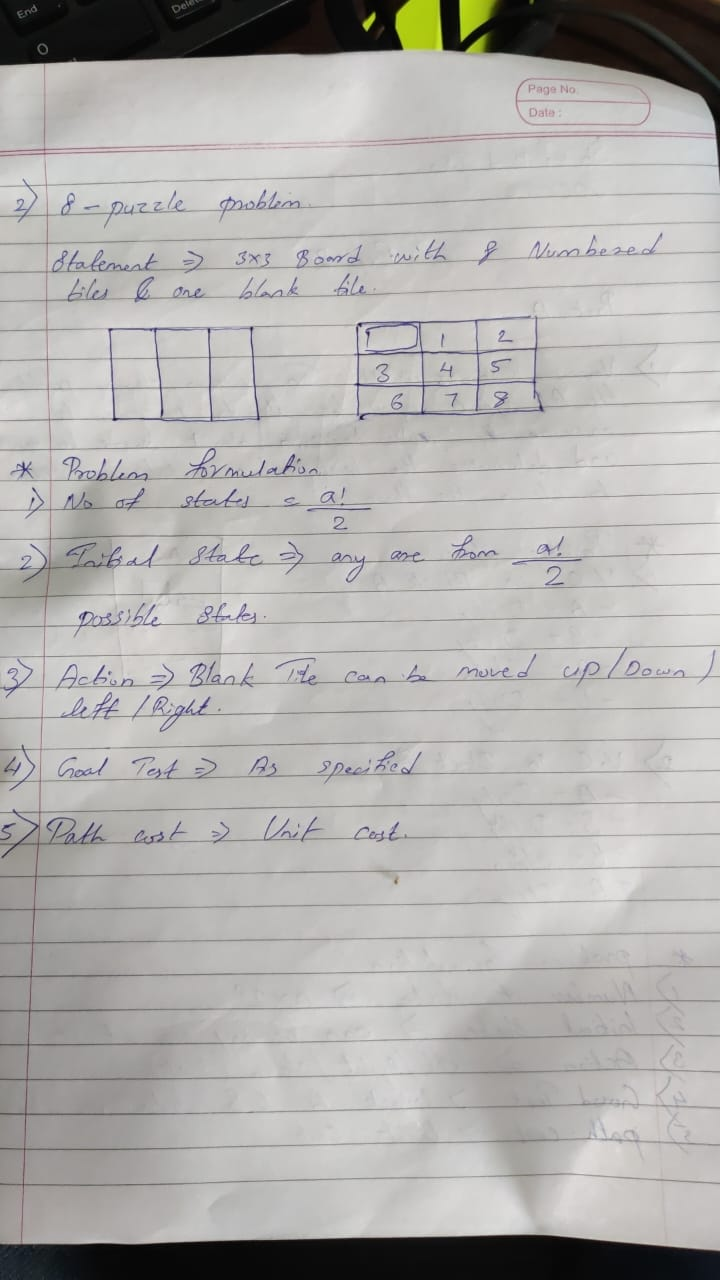 End
Delete
0
Page No.
Date :
2) 8 - puzzle problem.
Statement ⇒ 3x3 Board with 8 Numbered
tiles & one blank tile.
1 2
3 4 5
6 7 8
* Problem formulation
1) No of states = a!/2
2) Initial State ⇒ any one from a!/2
possible States.
3) Action ⇒ Blank Tile can be moved up/Down/
left / Right.
4) Goal Test ⇒ As specified
5) Path cost ⇒ Unit cost.